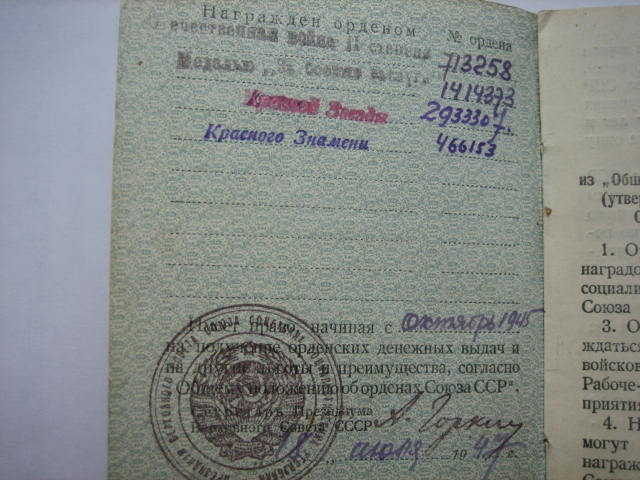 Награжден орденом
№ ордена
Отечественная война II степени 713258
Медалью „За боевые заслуг. 1414373
Красной Звезды 2933307.
Красного Знамени 466153
Имеет право, начиная с октября 1945
на получение орденских денежных выдач и
на другие льготы и преимущества, согласно
„Общему положению об орденах Союза ССР“.
Секретарь Президиума
Верховного Совета СССР А. Горкин
18 „ июля 1947 г.
из „Общ
(утвер
1. О
наградо
социали
Союза
3. О
ждаться
войсков
Рабоче-
приятия
4. Н
могут
награж